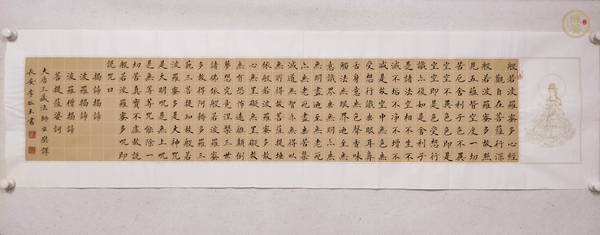 般若波羅蜜多心經
觀自在菩薩行深
般若波羅蜜多時照
見五蘊皆空度一切
苦厄舍利子色不異
空空不異色色即是
空空即是色受想行
識亦復如是舍利子
是諸法空相不生不
滅不垢不淨不增不
減是故空中無色無
受想行識無眼耳鼻
舌身意無色聲香味
觸法無眼界乃至無
意識界無無明亦無
無明盡乃至無老死
亦無老死盡無苦集
滅道無智亦無得以
無所得故菩提薩埵
依般若波羅蜜多故
心無罣礙無罣礙故
無有恐怖遠離顛倒
夢想究竟涅槃三世
諸佛依般若波羅蜜
多故得阿耨多羅三
藐三菩提故知般若
波羅蜜多是大神咒
是大明咒是無上咒
是無等等咒能除一
切苦真實不虛故說
般若波羅蜜多咒即
說咒曰
揭諦揭諦
波羅揭諦
波羅僧揭諦
菩提薩婆訶
大唐三藏法師玄奘譯
長安李玉書